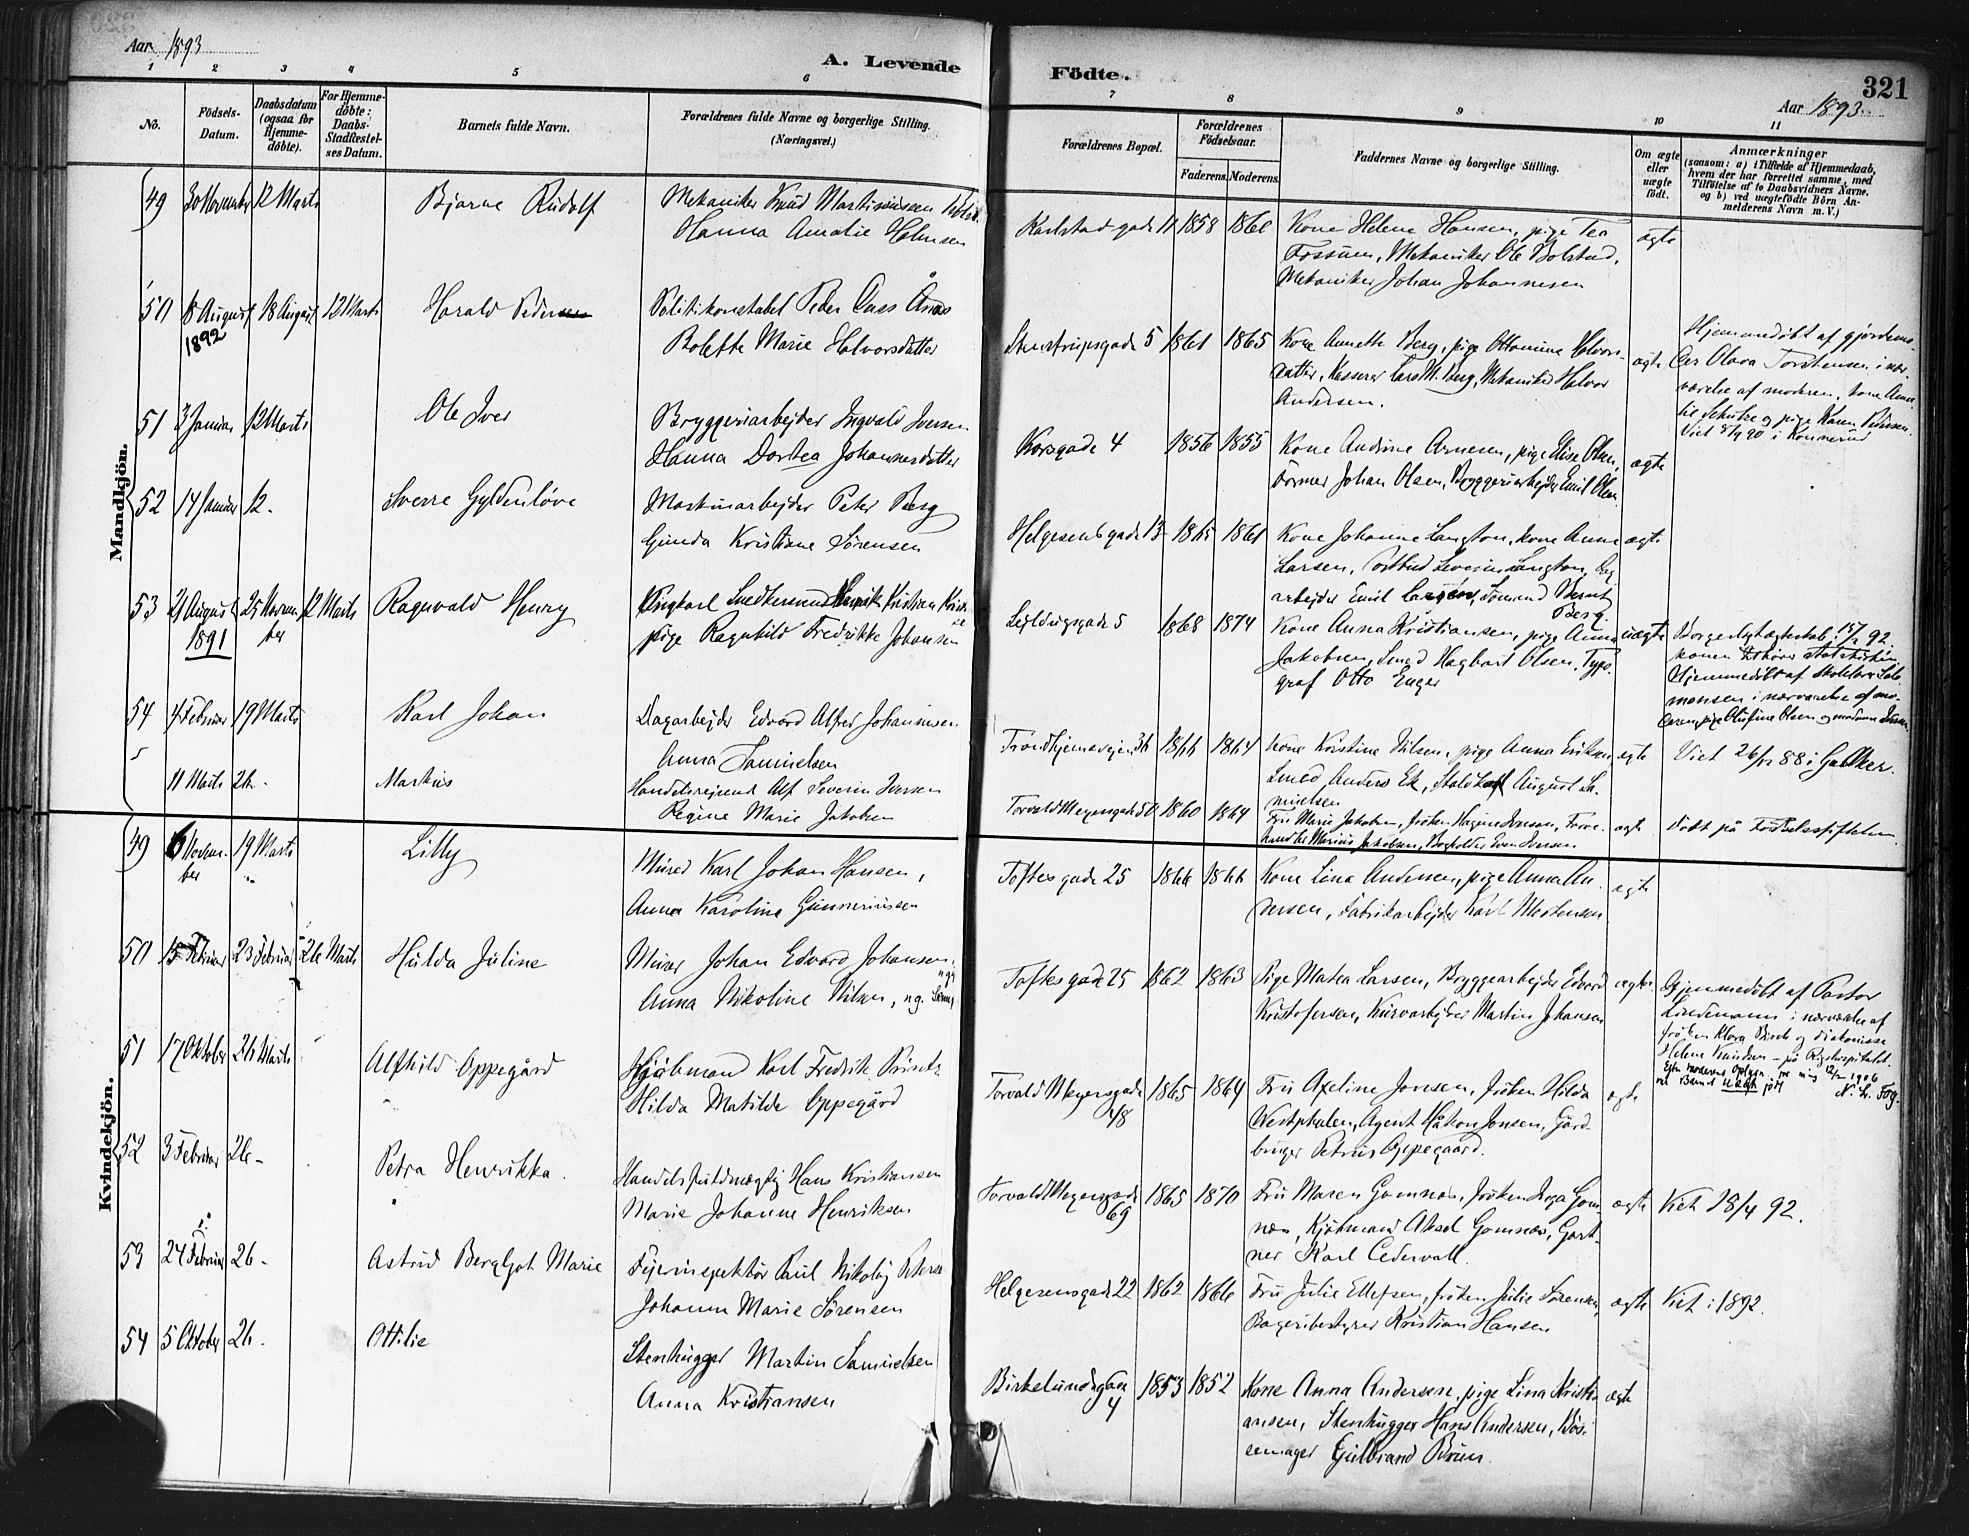 Aar 1893
A. Levende
Födte.
321
Aar 1893.
1 2 3 4 5 6
7 8 9 10 11
No.
Födsels-
Datum.
Daabsdatum
(ogsaa for
Hjemme-
döbte).
For Hjemme-
döbte:
Daabs-
Stadfæstel-
ses Datum.
Barnets fulde Navn.
Forældrenes fulde Navne og borgerlige Stilling.
(Næringsvei.)
Forældrenes Bopæl.
Forældrenes
Födselsaar.
Faderens. Moderens.
Faddernes Navne og borgerlige Stilling.
Om ægte
eller
uægte
födt.
Anmærkninger
(saasom: a) i Tilfælde af Hjemmedaab,
hvem der har forrettet samme, med
Tilföielse af to Daabsvidners Navne.
og b) ved uægtefödte Börn An-
melderens Navn m. V.)
Mandkjön.
49 30 November 12 Marts Bjarne Rudolf Mekaniker Knud Martinussen
Hanna Amalie Holmsen
Karlstadgade 11 1858 1860 Kone Helene Hansen, pige Tea
Fossum, Mekaniker Ole Bolstad,
Mekaniker Johan Johannesen
ægte
50 18 August 18 August 12 Marts Harald Peder
1892
Politikonstabel Peder Aass
Bolette Marie Halvorsdatter
Stenstrupsgade 5 1861 1865 Kone Annette Berg, pige Ottomine Halvors-
datter, Kasserer Lars M. Berg, Mekaniker Halvor
Andersen.
ægte
Hjemmedöbt af gjordemo-
der Olava Torstensen i nær-
værelse af moderen, kone Ama-
lie Schulze og pige Karen Pedersen.
Viet 8/9 90 i Konnerud
51 3 Januar 12 Marts Ole Iver Bryggeriarbejder Ingvald Iversen
Hanna Dortea Johannesdatter
Korsgade 4 1856 1855 Kone Andrine Arnesen, pige Elise Olsen,
Former Johan Olsen, Bryggeriarbejder Emil Olsen
ægte
52 14 Januar 12. Sverre Gyldenlöve Maskinarbejder Peter Berg
Gunda Kristiane Sörensen
Helgesensgade 13 1865 1861 Kone Johanne Langton, kone Anna
Larsen, Postbud Severin Langton,
arbejder Emil Larsen, Bernt
Berg.
ægte
53 21 August 25 Novem- 12 Marts Ragnvald Henry
1891 ber
Ungkarl Kristian
pige Ragnhild Fredrikke Johansen
5 1868 1874 Kone Anna Kristiansen, pige Anna
Jakobsen, Smed Hagbart Olsen, Typo-
graf Otto Enger
uægte
Borgerligt ægteskab 92.
Hjemmedöbt af
monsen i nærværelse af mo-
deren, pige Olufine Olsen og
54 4 Februar 19 Marts Karl Johan Dagarbejder Edvard Alfred Johannesen
Anna Samuelsen
Trondhjemsvejen 36 1866 1864 Kone Kristine Nilsen, pige Anna Eriksen
Smed Anders Ek, August Sa-
muelsen
ægte Viet 26/12 88 i
11 Marts 26. Markus Handelsrejsende Alf Severin Iversen
Regine Marie Jakobsen
Torvald Meyersgade 50 1860 1864 Fru Marie Jakobsen, fröken Hagine Iversen,
Marius Jakobsen, Bogholder Even Iversen
ægte Födt på Födselsstiftelsen
Kvindekjön.
49 6 Novem- 19 Marts Lilly
ber
Murer Karl Johan Hansen,
Anna Karoline Gunneriussen
Toftesgade 25 1866 1866 Kone Lina Andersen, pige Anna An-
dersen, Fabrikarbejder Karl Mortensen
ægte
50 15 Februar 23 Februar 26 Marts Hulda Juline Murer Johan Edvard Johansen,
Anna Nikoline Nilsen,
Toftesgade 25 1862 1863 Pige Matea Larsen, Bryggearbejder Edvard
Kristofersen, Kurvarbejder Martin Johansen
ægte
Hjemmedöbt af Pastor
Lindemann i nærværelse af
fröken Klara Birch og diakonisse
Helene Knudsen – på Rigshospitalet.
Efter moderens Oplysn. 1906
er Barnet uægte født
N. L. Fog.
51 17 Oktober 26 Marts Alfhild Oppegård Kjöbmand Karl Fredrik Printz
Hilda Matilde Oppegård
Torvald Meyersgade
48
1865 1864 Fru Axeline Jonsen, fröken Hilda
Westphalen, Agent Håkon Jonsen, Gård-
bruger Petrus Oppegaard.
ægte
52 3 Februar 26 – Petra Henrikka. Handelsfuldmægtig Hans Kristiansen
Marie Johanne Henriksen
Torvald Meyersgade
69
1865 1870 Fru Maren Gomnæs, fröken Inga Gom-
næs, Kjöbmand Aksel Gomnæs, Gart-
ner Karl Cedervall.
ægte Viet 18/4 92.
53 24 Februar 26 – Astrid Bergljot Marie Fyrinspektör Paul Nikolaj Peters
Johanne Marie Sörensen
Helgesensgade 22 1862 1866 Fru Julie Ellefsen, fröken Julie Sörensen,
Bageribestyrer Kristian Hansen
ægte Viet i 1892.
54 5 Oktober 26 – Ottilie Stenhugger Martin Samuelsen
Anna Kristiansen
Birkelundsgade
4
1853 1852 Kone Anna Andersen, pige Lina Kristi-
ansen, Stenhugger Hans Andersen, Bös-
semager Gulbrand Bruun.
ægte